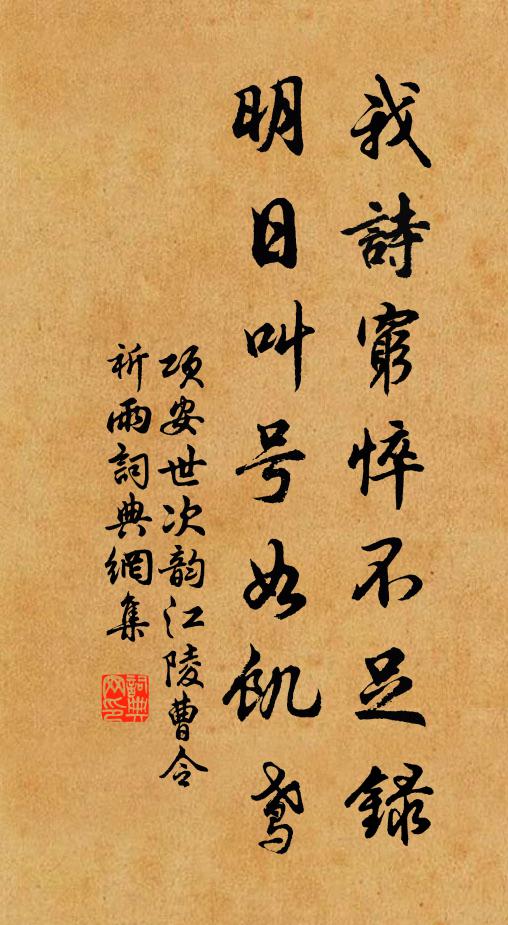 我詩窮悴不足錄
明日叫号如飢鳶
項安世次韵江陵曹令
祈雨詞典網集
詞典網印